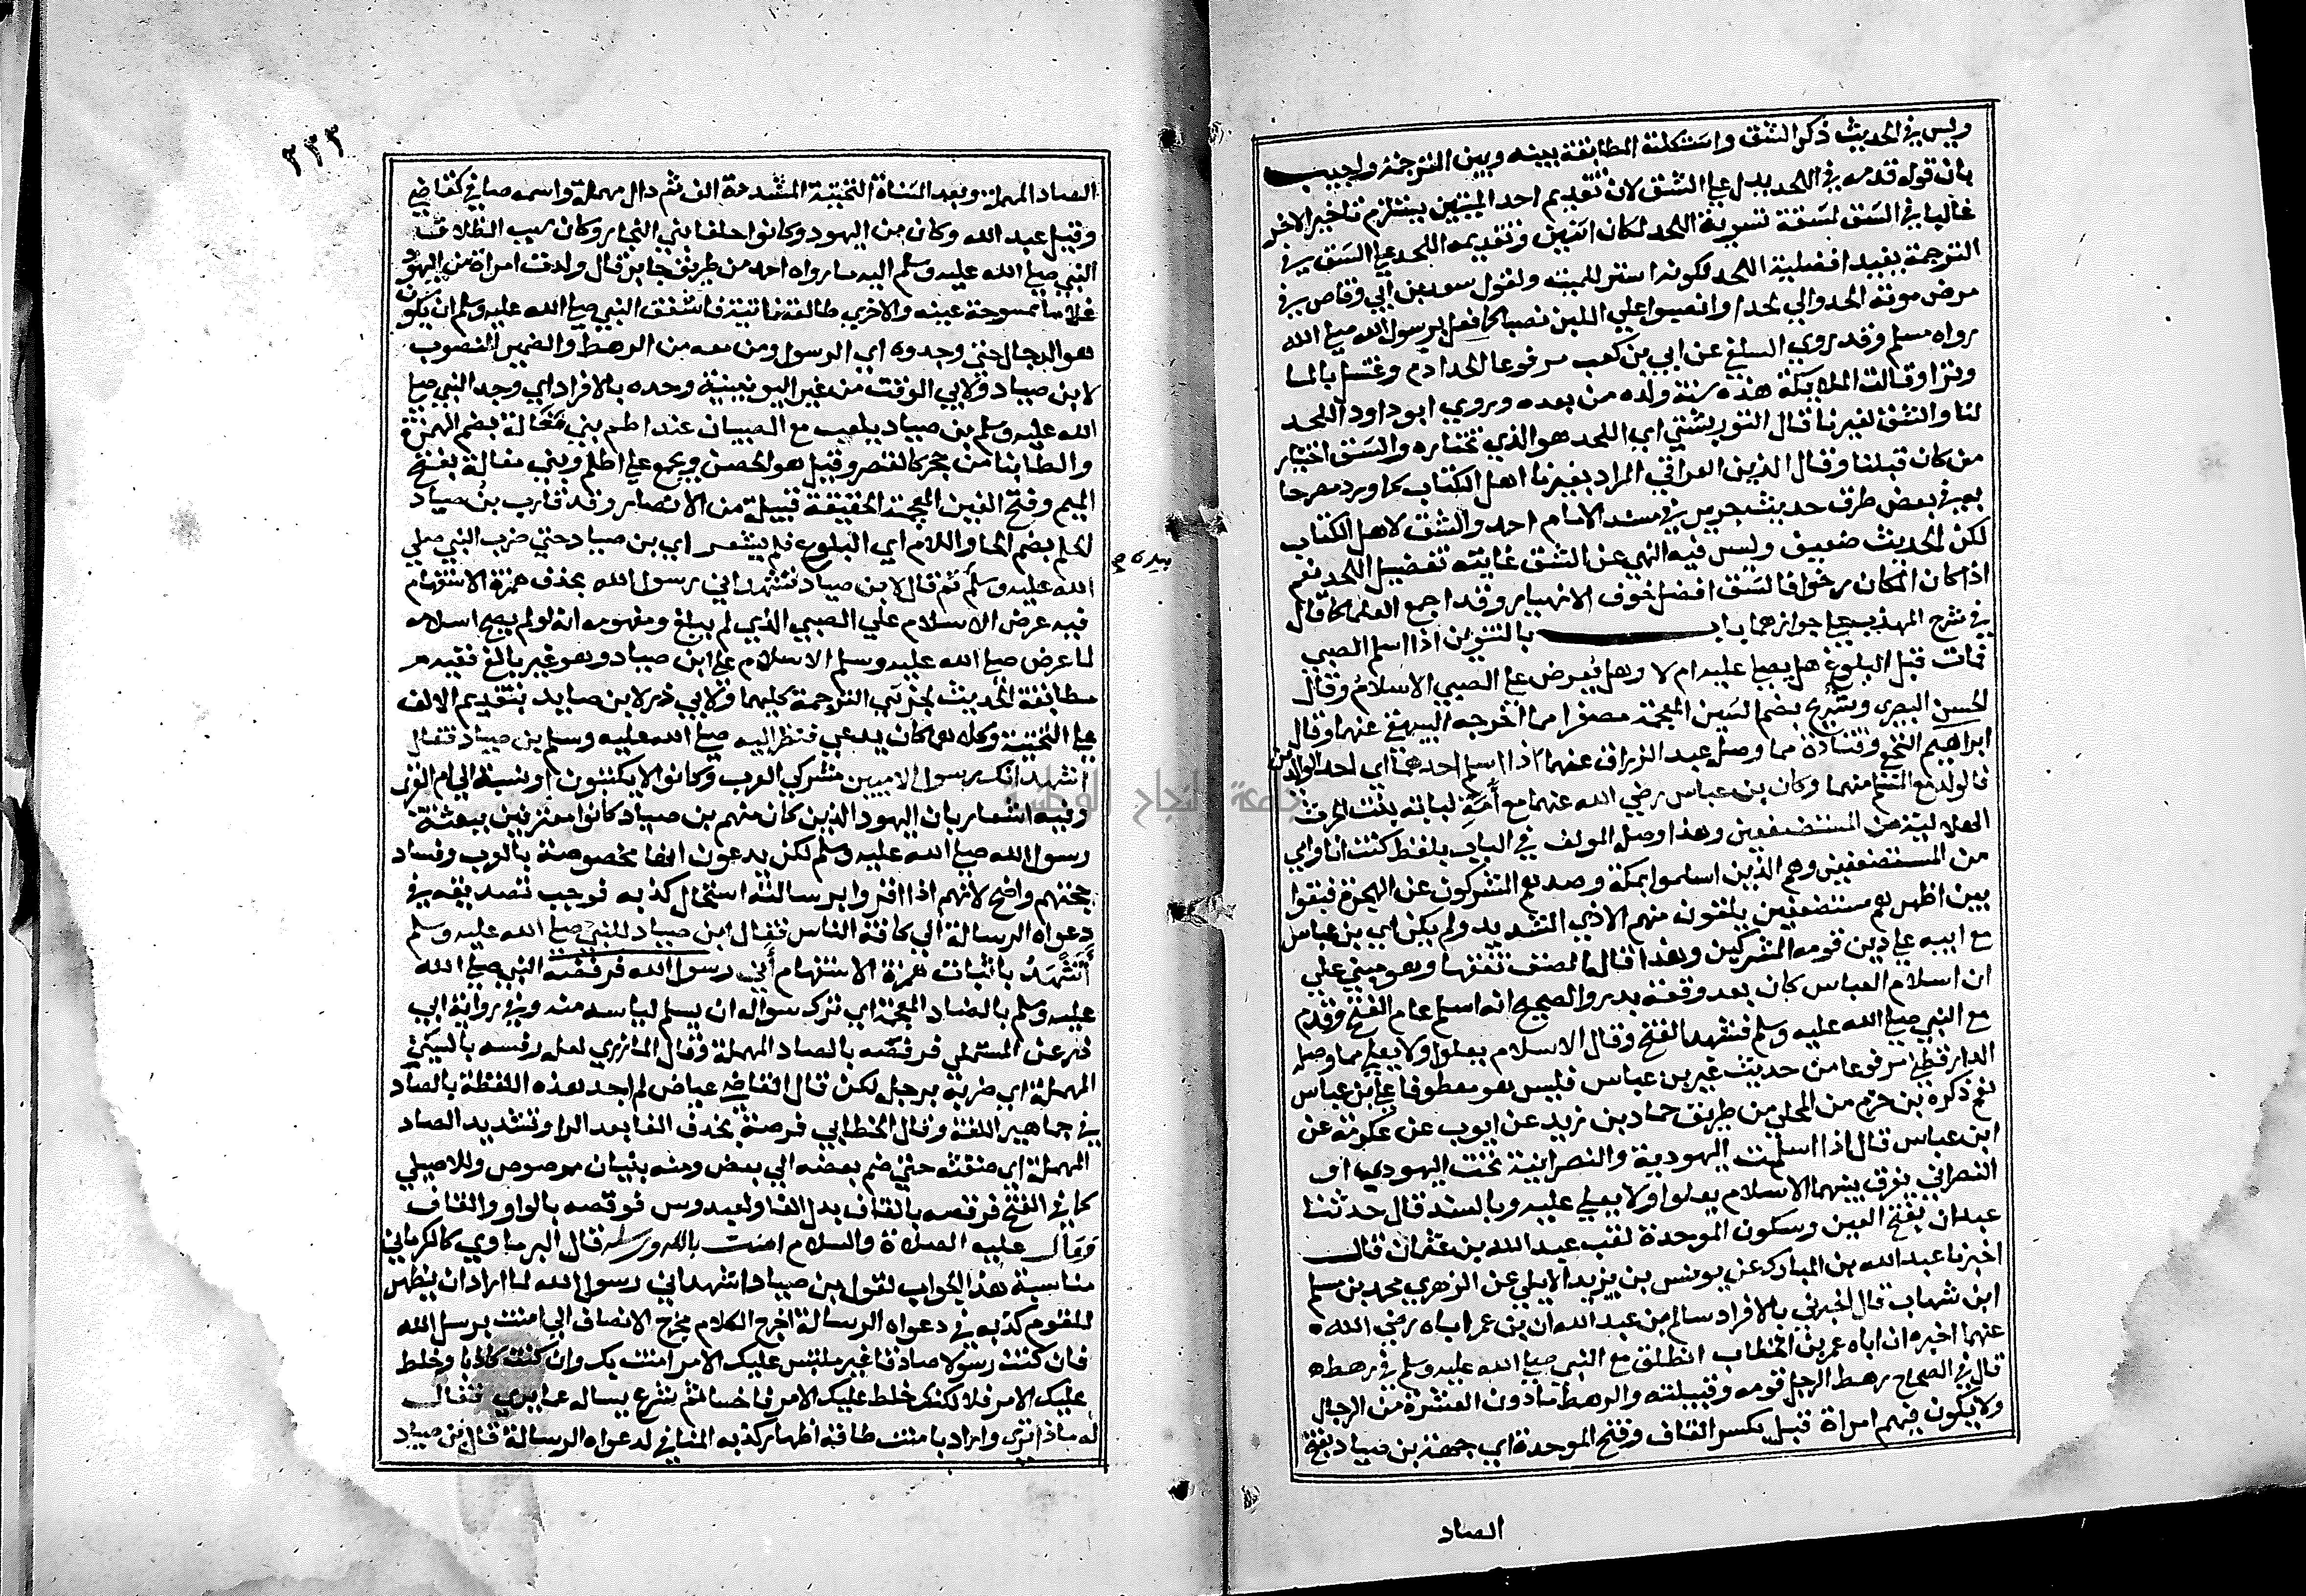 وليس في الحديث ذكر الشق واستشكلت المطابقة بينه وبين الترجمة واجيب
بان قوله قدمه في اللحد يدل علي الشق لان تقديم احد الميتين يستلزم تاخير الاخر
غالبا في الشق لمشقة تسوية اللحد لمكان اثنين وتقديمه اللحد علي الشق في
الترجمة يفيد افضلية اللحد لكونه استر للميت ولقول سعد بن ابي وقاص في
مرض موته الحدوا لي لحدا وانصبوا علي اللبن نصبا كما فعل برسول الله صلي الله
رواه مسلم وقد روي السلفي عن ابي بن كعب مرفوعا الحد ادم وغسل بالما
وترا وقالت الملايكة هذه سنة ولده من بعده وروي ابو داود اللحد
لنا والشق لغيرنا قال التوربشتي اي اللحد هو الذي نختاره والشق اختيار
من كان قبلنا وقال الزين العراقي المراد بغيرنا اهل الكتاب كما ورد مصرحا
به في بعض طرق حديث جرير في مسند الامام احمد والشق لاهل الكتاب
لكن الحديث ضعيف وليس فيه النهي عن الشق غايته تفضيل اللحد نعم
اذا كان المكان رخوا فالشق افضل خوف الانهيار وقد اجمع العلما كما قال
في شرح المهذب علي جوازهما باب بالتنوين اذا اسلم الصبي
فمات قبل البلوغ هل يصلي عليه ام لا وهل يعرض علي الصبي الاسلام وقال
الحسن البصري وشريح بضم الشين المعجمة مصغرا مما اخرجه البيهقي عنهما وقال
ابراهيم النخعي وقتادة مما وصله عبد الرزاق عنهما اذا اسلم احدهما اي احد الوالدين
فالولد مع المسلم منهما وكان بن عباس رضي الله عنهما مع امه لبابة بنت الحرث
الهلالية من المستضعفين وهذا وصله المولف في الباب بلفظ كنت انا وامي
من المستضعفين وهم الذين اسلموا بمكة وصدهم المشركون عن الهجرة فبقوا
بين اظهرهم مستضعفين يلقون منهم الاذي الشديد ولم يكن اي بن عباس
مع ابيه علي دين قومه المشركين وهذا قاله المصنف تفقها وهو مبني علي
ان اسلام العباس كان بعد وقعة بدر والصحيح انه اسلم عام الفتح وقدم
مع النبي صلي الله عليه وسلم فشهد الفتح وقال الاسلام يعلوا ولا يعلي مما وصله
الدارقطني مرفوعا من حديث غير بن عباس فليس هو معطوفا علي بن عباس
نعم ذكره بن حزم من المحلي من طريق حماد بن زيد عن ايوب عن عكرمة عن
ابن عباس قال اذا اسلمت اليهودية والنصرانية تحت اليهودي او
النصراني يفرق بينهما الاسلام يعلوا ولا يعلي عليه وبالسند قال حدثنا
عبدان بفتح العين وسكون الموحدة لقب عبد الله بن عثمان قال
اخبرنا عبد الله بن المبارك عن يونس بن يزيد الايلي عن الزهري محمد بن مسلم
ابن شهاب قال اخبرني بالافراد سالم بن عبد الله ان بن عمر اباه رضي الله
عنهما اخبره ان اباه عمر بن الخطاب انطلق مع النبي صلي الله عليه وسلم في رهط
قال في الصحاح رهط الرجل قومه وقبيلته والرهط مادون العشرة من الرجال
ولا يكون فيهم امراة قبل بكسر القاف وفتح الموحدة اي جهة بن صياد بفتح
الصاد
٢٣٣
الصاد المهملة وبعد المثناة التحتية المشددة الف ثم دال مهملة واسمه صافي كقاضي
وقيل عبد الله وكان من اليهود وكانوا حلفا بني النجار وكان سبب انطلاق
النبي صلي الله عليه وسلم اليه مارواه احمد من طريق جابر قال ولدت امراة من اليهود
غلاما ممسوحة عينه والاخري طالعة ناتية فاشفق النبي صلي الله عليه وسلم ان يكون
هو الدجال حتي وجدوه اي الرسول ومن معه من الرهط والضمير المنصوب
لابن صياد ولابي الوقت من غير اليونينية وجده بالافراد اي وجد النبي صلي
الله عليه وسلم بن صياد يلعب مع الصبيان عند اطم بني مغالة بضم الهمزة
والطا بنا من حجر كالقصر وقيل هو الحصن ويجمع علي اطام وبني مغالة بفتح
الميم وفتح الغين المعجمة الخفيفة قبيلة من الانصار وقد قارب بن صياد
الحلم بضم الحا واللام اي البلوغ فلم يشعر اي بن صياد حتي ضرب النبي صلي
بيده ح
الله عليه وسلم ثم قال لابن صياد تشهد اني رسول الله بحذف همزة الاستفهام
فيه عرض الاسلام علي الصبي الذي لم يبلغ ومفهومه انه لو لم يصح اسلامه
لما عرض صلي الله عليه وسلم الاسلام علي ابن صياد وهو غير بالغ ففيه
مطابقة الحديث لجزئي الترجمة كليهما ولابي ذر لابن صايد بتقديم الالف
علي التحتية وكلاهما كان يدعي فنظر اليه صلي الله عليه وسلم بن صياد فقال
اشهد انك رسول الاميين مشركي العرب وكانوا لا يكتبون او نسبة الي ام القري
وفيه اشعار بان اليهود الذين كان منهم بن صياد كانوا معترفين ببعثة
رسول الله صلي الله عليه وسلم لكن يدعون انها مخصوصة بالعرب وفساد
حجتهم واضح لانهم اذا اقروا برسالته استحال كذبه فوجب تصديقه في
دعواه الرسالة الي كافة الناس فقال ابن صياد للنبي صلي الله عليه وسلم
أتشهد باثبات همزة الاستفهام أني رسول الله فرفضه النبي صلي الله
عليه وسلم بالضاد المعجمة اي ترك سواله ان يسلم لياسه منه وفي رواية ابي
ذر عن المستملي فرفصه بالصاد المهملة وقال المازري لعله رفسه بالسين
المهملة اي ضربه برجله لكن قال القاضي عياض لم اجد هذه اللفظة بالصاد
في جماهير اللغة وقال الخطابي فرصه بحذف الفا بعد الرا وتشديد الصاد
المهملة اي ضغطه حتي ضم بعضه الي بعض ومنه بنيان مرصوص وللاصيلي
كما في الفتح فرقصه بالقاف بدل الفا ولعبدوس فوقصه بالواو والقاف
وقال عليه الصلاة والسلام امنت بالله ورسله قال البرماوي كالكرماني
مناسبة هذا الجواب لقول بن صياد اتشهد اني رسول الله لما اراد ان يظهر
للقوم كذبه في دعواه الرسالة اخرج الكلام مخرج الانصاف اي امنت برسل الله
فان كنت رسولا صادقا غير ملتبس عليك الامر امنت بك وان كنت كاذبا وخلط
عليك الامر فلا لكنك خلط عليك الامر فاخسا ثم شرع يساله عما يري فقال
له ماذا تري واراد باستنطاقه اظهار كذبه المنافي لدعواه الرسالة قال بن صياد